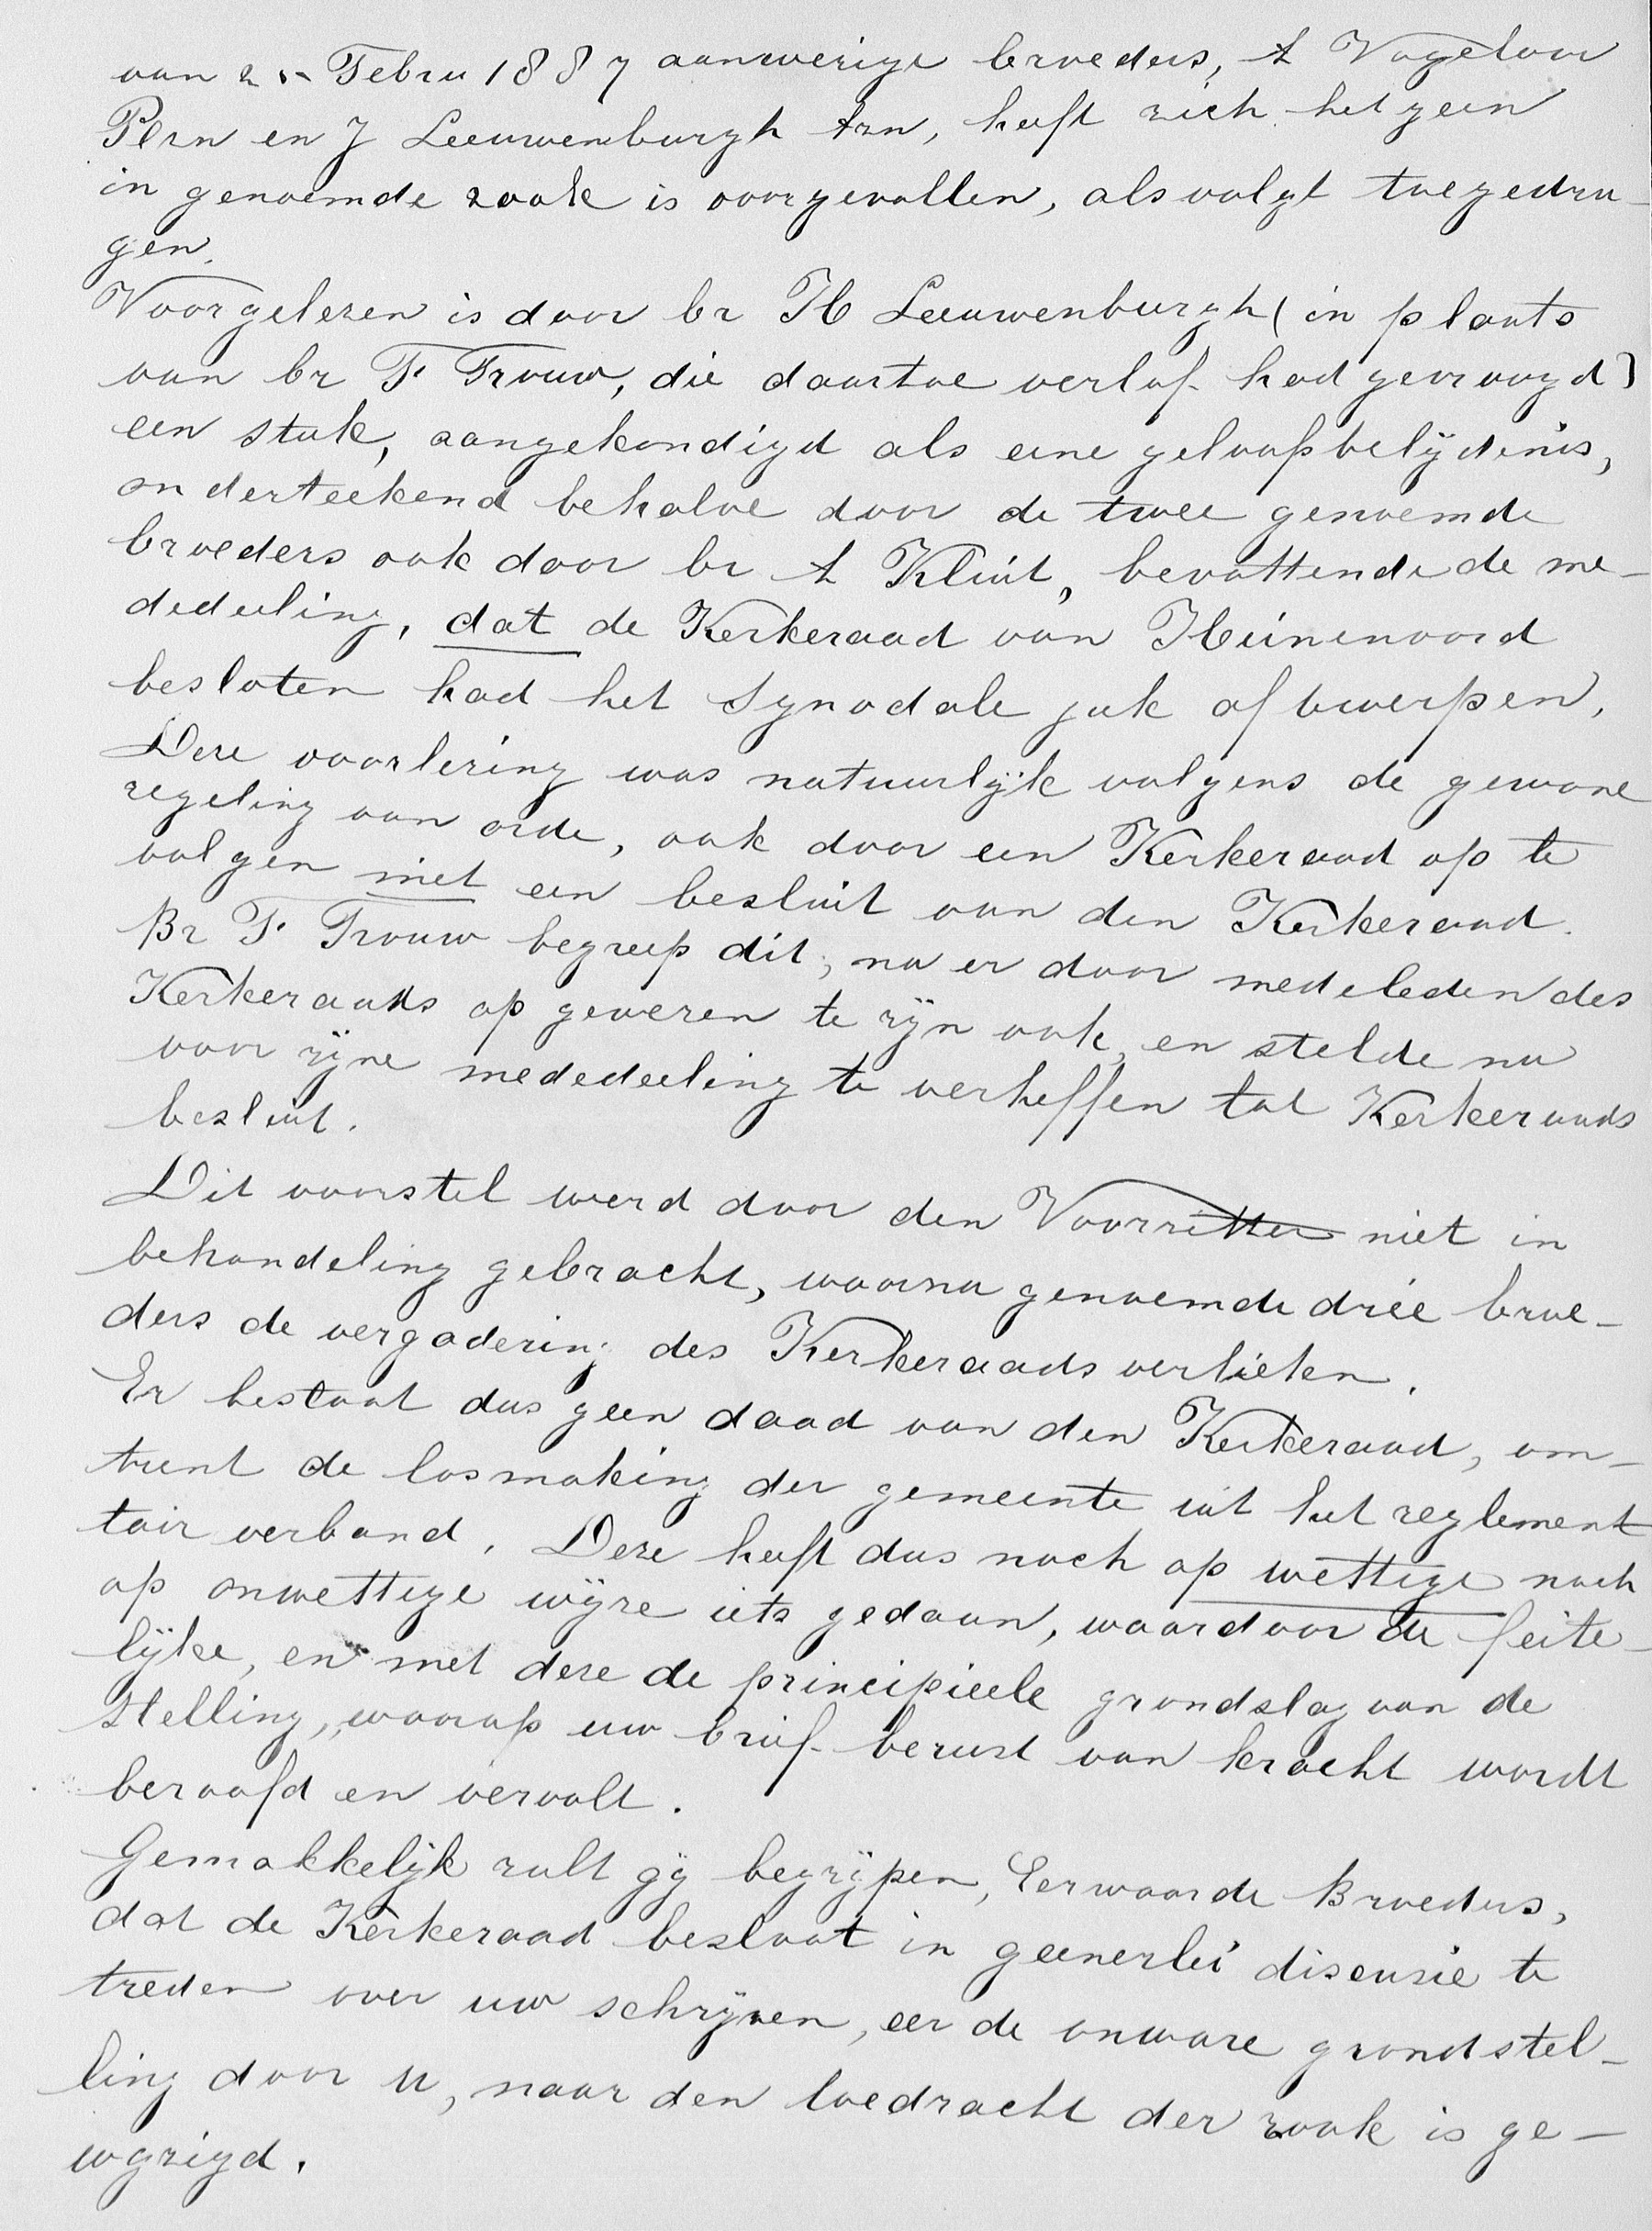 van 25 Febru 1887 aanwezige broeders, A Vogelaar
Pzn en J Leeuwenburgh Azn, heeft zich hetgeen
in genoemde zaak is voorgevallen, als volgt toegedra-
gen.
Voorgelezen is door br H Leeuwenburgh (in plaats
van br F. Trouw, die daartoe verlof had gevraagd)
een stuk, aangekondigd als eene geloofsbelijdenis,
onderteekend behalve door de twee genoemde
broeders ook door br A Kluit, bevattende de me-
dedeeling, dat de Kerkeraad van Heinenoord
besloten had het Synodale juk aftewerpen,
Deze voorlezing was natuurlijk volgens de gewone
regeling van orde, ook door een Kerkeraad op te
volgen niet een besluit van den Kerkeraad.
Br F. Trouw begreep dit, na er door medeleden des
Kerkeraads op gewezen te zijn ook, en stelde nu
voor zijne mededeeling te verheffen tot Kerkeraads
besluit.
Dit voorstel werd door den Voorzitter niet in
behandeling gebracht, waarna genoemde drie broe-
ders de vergadering des Kerkeraads verlieten.
Er bestaat dus geen daad van den Kerkeraad, om-
trent de losmaking der gemeente uit het reglement
tair verband. Deze heeft dus noch op wettige noch
op onwettige wijze iets gedaan, waardoor de feite-
lijke, en met deze de principieele grondslag van de
stelling, waarop uw brief berust van kracht wordt
beroofd en vervalt.
Gemakkelijk zult gij begrijpen, Eerwaarde Broeders,
dat de Kerkeraad besloot in geenerlei discusie te
treden over uw schrijven, eer de onware grondstel-
ling door u, naar den toedracht der zaak is ge-
wijzigd.